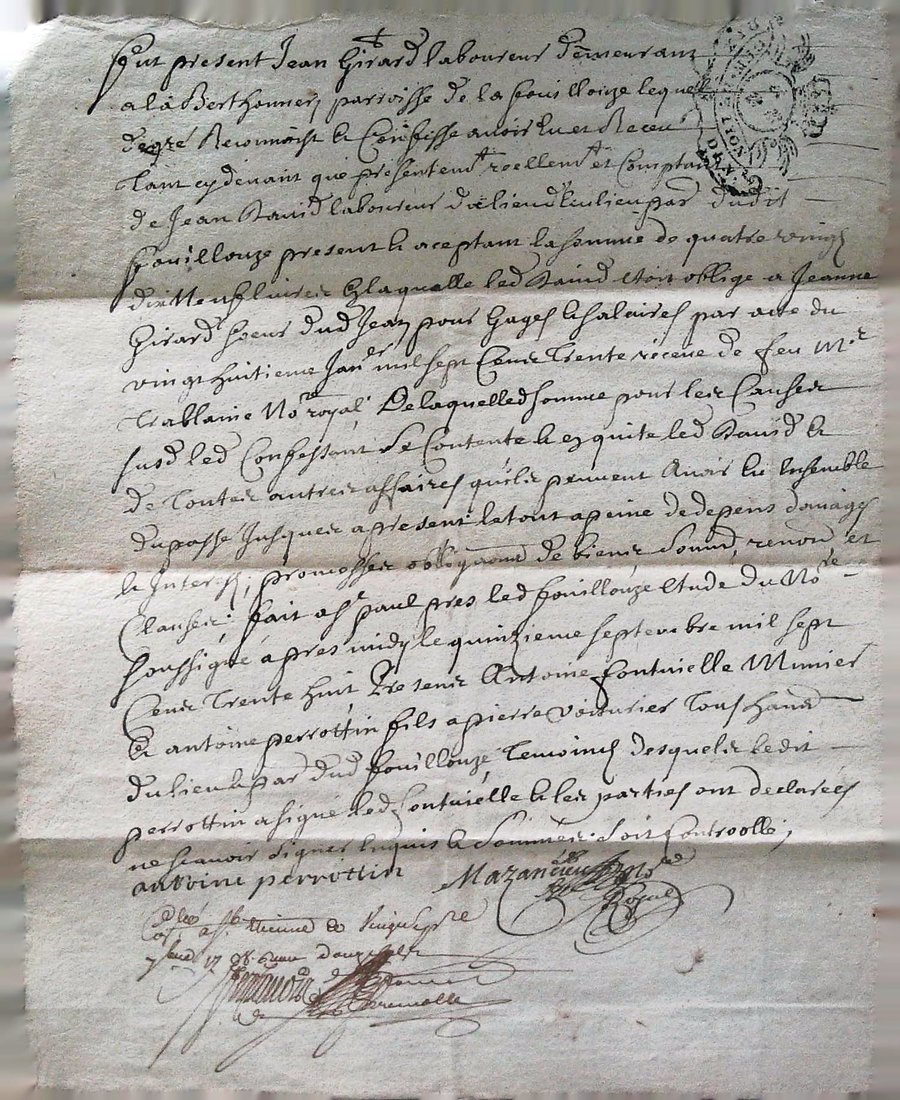 Fut present Jean Girard laboureur demeurant
a la Berthonnery parroisse de la fouillouze lequel
de gré Reconnoist et Confesse avoir eu et Receu
tant cy devant que presentemt reellemt et Comptant
de Jean laboureur du lieu et par dudit
fouillouze present et aceptant la somme de quatre vingt
dix Neuf livres a laquelle led etoit obligé a Jeanne
Girard soeur dud Jean pour Gages et salaires par acte du
vingt huitieme Janer mil sept Cens Trente receue de feu Mr
Trablaine Nore royal, De laquelle d somme pour les Causes
susd led Confessant Se Contente et en quite led et
de toutes autres affaires qu'ils peuvent Avoir eu Ensemble
du passé Jusques a present le tout a peine de depens domages
et Interets, promesses obligaons de biens Soumd, renond et
Clauses; fait a St paul pres led fouillouze Etude du Nore
soussigné apres midy le quinzieme septembre mil sept
Cens Trente huit, Presens Antoine fontvielle Munier
et antoine perrottin fils a pierre voiturier Tous hand
du lieu et par dud fouillouze Temoins desquels ledit
perrottin a signé led fontvielle et les parties ont declarées
ne scavoir signer Enquis et Sommés. Soit Controollé,
antoine perrottin Mazancieux Nore
Royal
a St Etienne le vingt 7bre
1738 douze sols